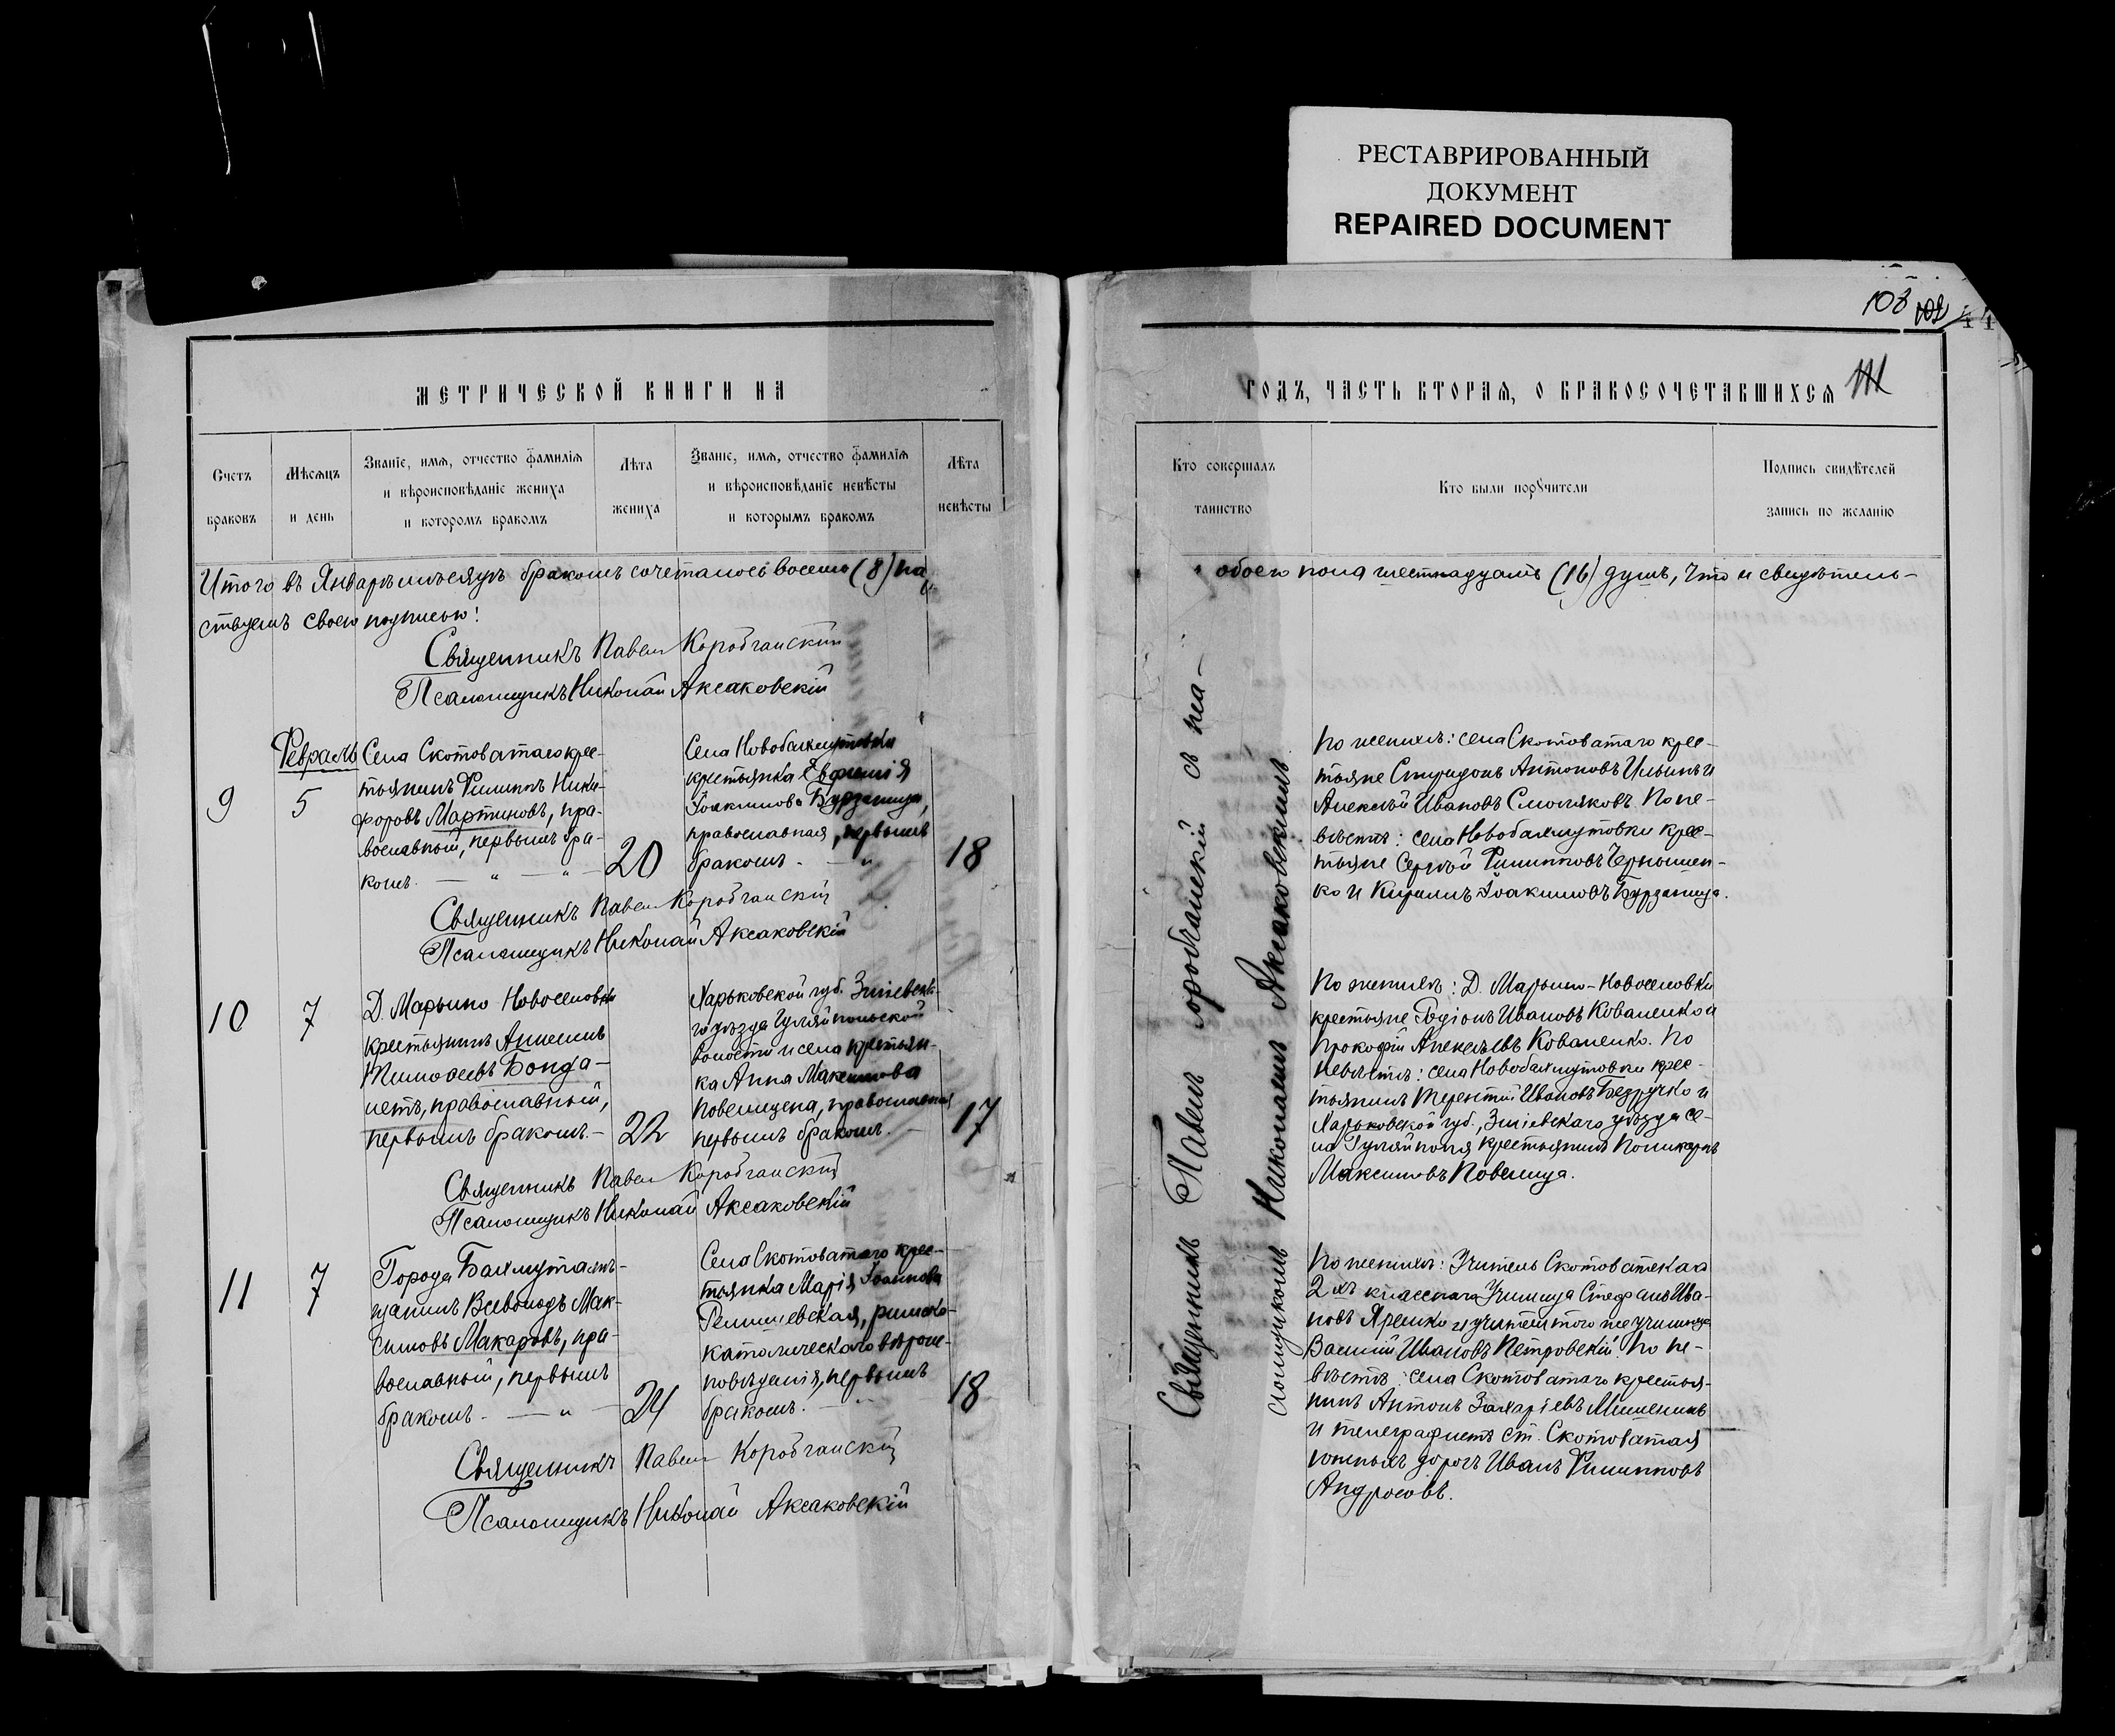 РЕСТАВРИРОВАННЫЙ
ДОКУМЕНТ
REPAIRED DOCUMENT
103
МЕТРИЧЕСКОЙ КНИГИ НА
Счетъ
браковъ
Мѣсяцъ
и день
Званіе, имя, отчество фамилія
и вѣроисповѣданіе жениха
и которомъ бракомъ
Лѣта
жениха
Званіе, имя, отчество фамилія
и вѣроисповѣданіе невѣсты
и которымъ бракомъ
Лѣта
невѣсты
Итого въ Январѣ мѣсяцѣ бракомъ сочеталось восемь (8) па
ствуемъ своею подписью:
Священникъ Павелъ Коробчанскій
Псаломщикъ Николай Аксаковскій
Февраль
9
5
Села Скотоватаго крес-
тьянинъ Филиппъ Ники-
форовъ Мартиновъ, пра-
вославный, первымъ бра-
комъ. — " — " —
20
Села Новобахмутовки
крестьянка Евфимія
Іоакимова Бурзаница,
православная, первымъ
бракомъ. — "
18
Священникъ Павелъ Коробчанскій
Псаломщикъ Николай Аксаковскій
10
7
Д. Марьино Новоселовки
крестьянинъ
Тимофеевъ Бонда-
православный,
первымъ бракомъ. —
22
Харьковской губ. Зміевска-
го уѣзда Гуляйпольской
волости и села крестьян-
ка Анна Максимова
Повелицена, православная
первымъ бракомъ. —
17
Священникъ Павелъ Коробчанскій
Псаломщикъ Николай Аксаковскій
11
7
Города Бахмута мѣ-
щанинъ Всеволодъ Мак-
симовъ Макаровъ, пра-
вославный, первымъ
бракомъ. — " —
24
Села Скотоватаго крес-
тьянка Марія Іоаннова
римско-
католическаго вѣроис-
повѣданія, первымъ
бракомъ. — "
18
Священникъ Павелъ Коробчанскій
Псаломщикъ Николай Аксаковскій
ГОДЪ, ЧАСТЬ ВТОРАЯ, О БРАКОСОЧЕТАВШИХСЯ
Кто совершалъ
таинство
Кто были поручители
Подпись свидѣтелей
запись по желанію
обоего пола шестнадцать (16) душъ, что и свидѣтель-
Священникъ Павелъ Коробчанскій съ пса-
ломщикомъ Николаемъ Аксаковскимъ
По женихѣ: села Скотоватаго крес-
тьяне Спиридонъ Антоновъ Ильинъ и
Алексѣй Ивановъ Смоляковъ. По не-
вѣстѣ: села Новобахмутовки крес-
тьяне Сергѣй Филипповъ Чернышен-
ко и Кириллъ Іоакимовъ Бурзаница.
По женихѣ: Д. Марьино-Новоселовки
крестьяне Родіонъ Ивановъ Коваленко и
Прокофій Алексѣевъ Коваленко. По
невѣстѣ: села Новобахмутовки крес-
тьянинъ Терентій Ивановъ Бедручко и
Харьковской губ., Зміевскаго уѣзда се-
ла Гуляйполя крестьянинъ Поликарпъ
Максимовъ Повелица.
По женихѣ: Учитель Скотоватскаго
2хъ класснаго Училища Стефанъ Ива-
новъ Яренко и учитель того же училища
Василій Ивановъ Петровскій. По не-
вѣстѣ: села Скотоватаго крестья-
нинъ Антонъ Захаріевъ
и телеграфистъ ст. Скотоватая
южныхъ дорогъ Иванъ Филипповъ
Андросовъ.